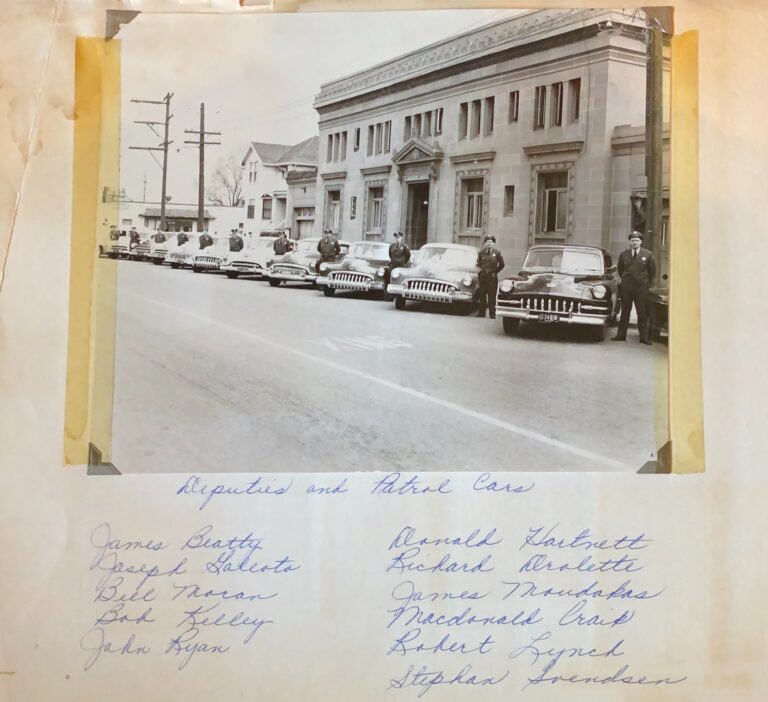 XING
Deputies and Patrol Cars
James Beatty
Joseph
Bill Moran
Bob Kelley
John Ryan
Donald Hartnett
Richard Drolette
James Moudakas
Macdonald Craik
Robert Lynch
Stephan Svendsen